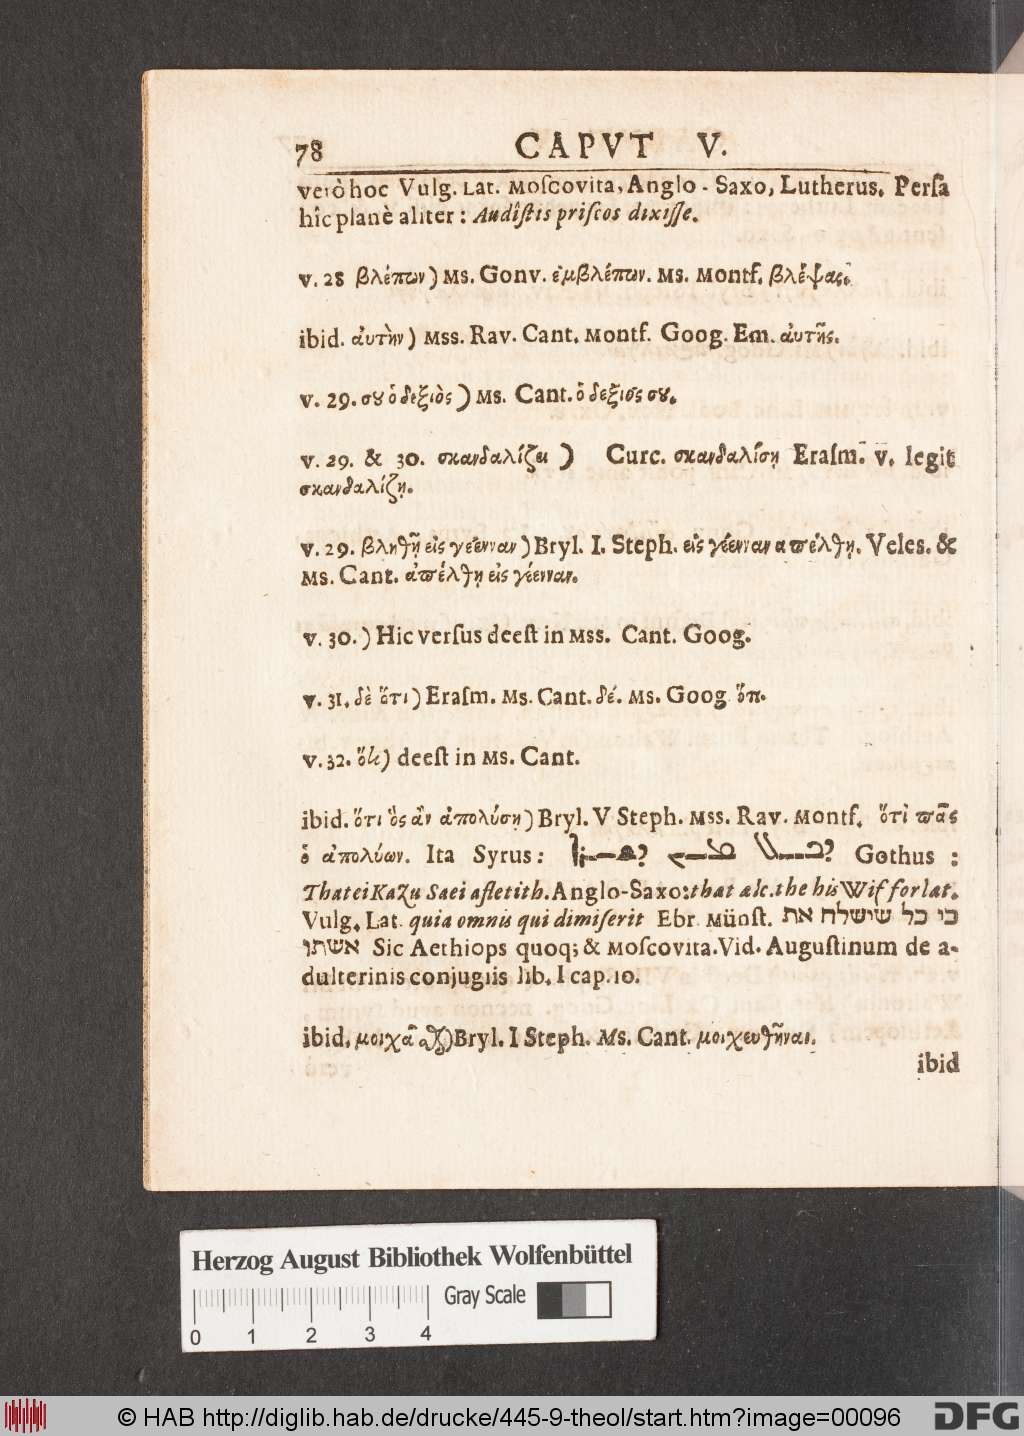 78 CAPVT V.
verò hoc Vulg. Lat. Moſcovita, Anglo-Saxo, Lutherus. Perſa
hîc planè aliter: Audîſtis priſcos dixiſſe.
v. 28 βλέπων) Ms. Gonv. ἐμβλέπων. Ms. Montf. βλέψας.
ibid. ἀυτὴν) Mss. Rav. Cant. Montf. Goog. Em. ἀυτῆς.
v. 29. σου ὁ δεξιὸς) Ms. Cant. ὁ δεξιός σου.
v. 29. & 30. σκανδαλίζει) Curc. σκανδαλίση Eraſm. v. legit
σκανδαλίζῃ.
v. 29. βληθῇ εἰς γέενναν) Bryl. I. Steph. εἰς γέενναν απέλθῃ. Veles. &
Ms. Cant. ἀπέλθῃ εἰς γέενναν.
v. 30.) Hic verſus deeſt in Mss. Cant. Goog.
v. 31. δὲ ὅτι) Eraſm. Ms. Cant. δέ. Ms. Goog ὅτι.
v. 32. ὅτι) deeſt in Ms. Cant.
ibid. ὅτι ὃς ἂν ἀπολύσῃ) Bryl. V Steph. Mss. Rav. Montf. ὅτι πᾶς
ὁ ἀπολύων. Ita Syrus: Gothus:
Thatei Kazu Saei afletith. Anglo-Saxo: that ælc. the his Wif forlat.
Vulg. Lat. quia omnis qui dimiſerit Ebr. Münſt. כי כל שישלח את
אשתו Sic Aethiops quoq; & Moſcovita. Vid. Auguſtinum de a-
dulterinis conjugiis lib. I cap. 10.
ibid. μοιχᾶσθαι) Bryl. I Steph. Ms. Cant. μοιχευθῆναι.
ibid
Herzog August Bibliothek Wolfenbüttel
Gray Scale
0 1 2 3 4
© HAB http://diglib.hab.de/drucke/445-9-theol/start.htm?image=00096 DFG